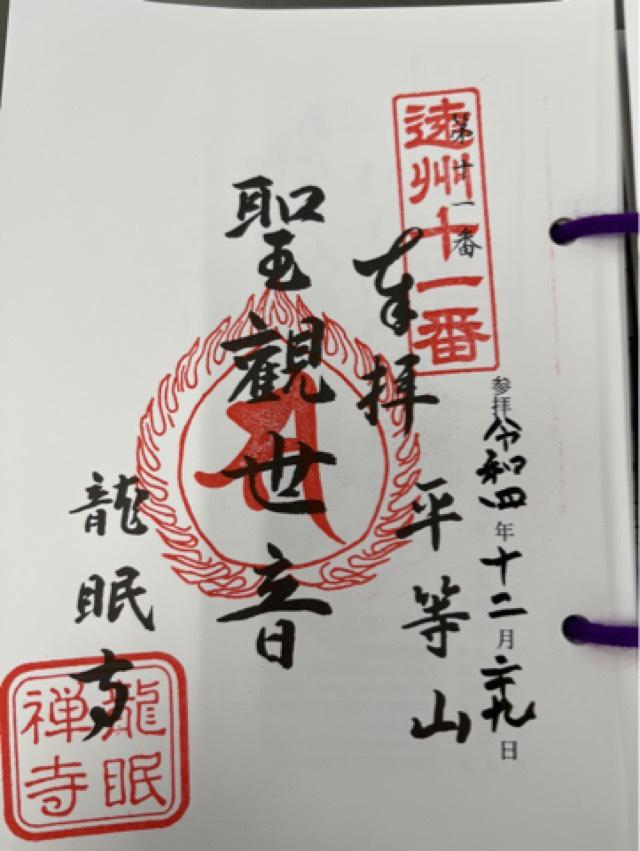 参拝令和四年十二月二十九日
遠州十一番
第十一番
奉拝
平等山
聖觀世音
龍眠寺
龍眠
禅寺